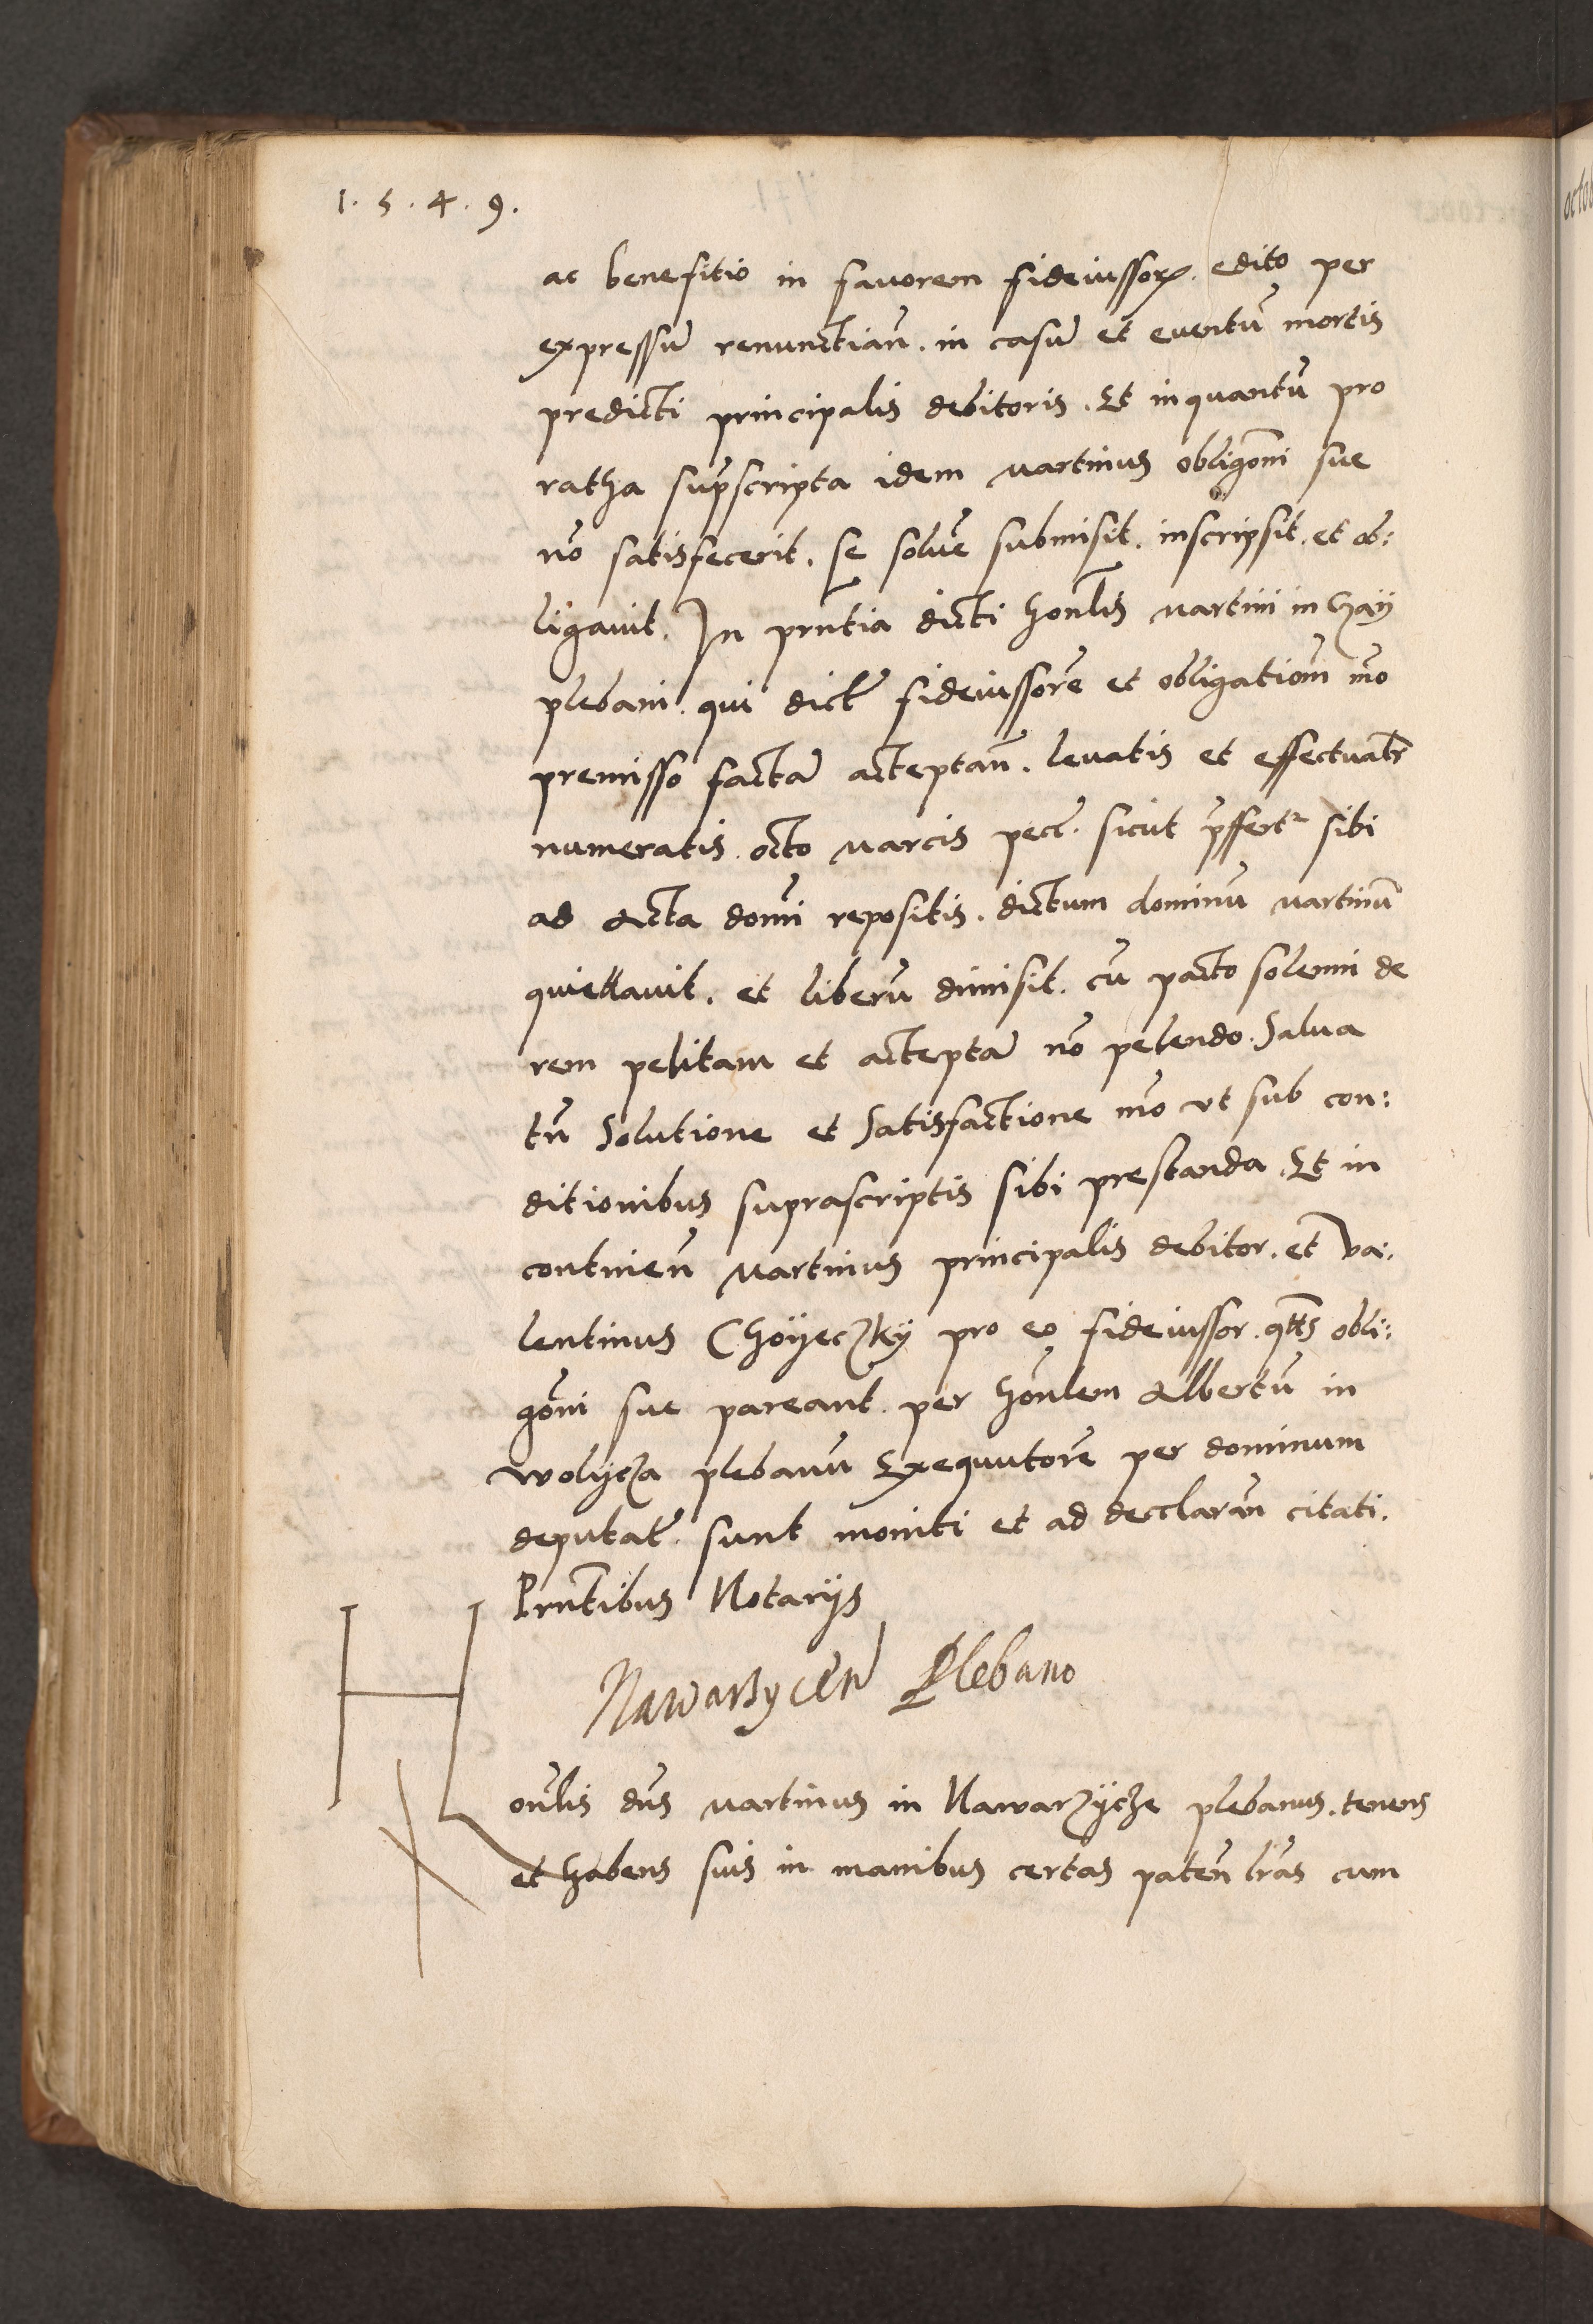 1.5.4.9.
ac benefitio in fauorem fideiussorꝝ. edito per
expressũ renunctiañ. in casũ et euentũ mortis
predicti principalis debitoris. Et inquantũ pro
ratha sup̃scripta idem Martinus obligõni sue
nõ satisfecerit. se soluẽ submisit. inscripsit. et ob:
ligauit. In pñtia dicti honlis Martini in Gay
plebani. qui dictẽ fideiussorẽ et obligationẽ mõ
premisso factã acceptañ. leuatis et effectuatr
numeratis octo Marcis pecẽ. sicut p̃ffertr sibi
ad Acta domi repositis. dictum dominũ Martinũ
quiettauit. et liberũ dimisit. cũ pacto solenni de
rem petitam et acceptã nõ petendo. Salua
tñ Solutione et Satisfactione mõ vt sub con:
ditionibus suprascriptis sibi prestanda. Et in
continenñ Martinus principalis debitor. et Va:
lentinus Choyeczky pro eo fideiussor. qtts obli:
gõni sue pareant. per honlem Albertũ in
Wolycza plebanũ Exequutorẽ per dominum
deputatẽ. sunt moniti et ad decclarañ citati.
Pñtibus Notarijs
Nawarzyceñ Plebano
H
onlis dñs Martinus in Nawarzycze plebanus. tenens
et habens suis in manibus certas pateñ lr̃as cum